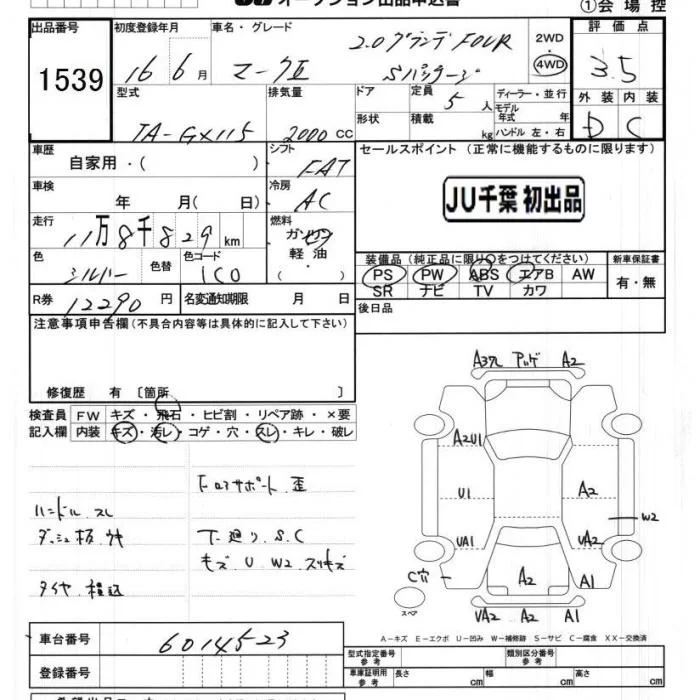 JU オークション出品申込書
①会場控
出品番号 初度登録年月 車名・グレード 評価点
1539 16 6月 マークⅡ 2.0グランデFOUR Sパッケージ 2WD 4WD 3.5
型式 排気量 ドア 定員 5人 ディーラー・並行 外装 内装
TA-GX115 2000cc 形状 積載 kg モデル年式 年 ハンドル 左・右 D C
車歴 シフト セールスポイント (正常に機能するものに限ります)
自家用・( ) FAT
車検 冷房 JU千葉 初出品
年 月( 日) AC
走行 燃料
11万8千829km ガソリン
軽油
装備品 (純正品に限り○をつけてください) 新車保証書
色 色替 色コード PS PW ABS エアB AW 有・無
シルバー 1C0 SR ナビ TV カワ
R券 12290円 名変通知期限 月 日 後日品
注意事項申告欄 (不具合内容等は具体的に記入して下さい)
修復歴 有 〔箇所 〕
検査員 FW キズ・飛石・ヒビ割・リペア跡・×要
記入欄 内装 キズ・汚レ・コゲ・穴・スレ・キレ・破レ
A3穴 アッゲ A2
A2U1
U1 A2
W2
UA1 UA2
C穴 A2 A1
スペア UA2 A2 A1
ハンドル スレ
ダッシュ板 ウキ
タイヤ 積込
サポート 歪
下廻り S.C
キズ U W2 スリキズ
A-キズ E-エクボ U-凹み W-補修跡 S-サビ C-腐食 XX-交換済
車台番号 6014523
登録番号
型式指定番号 参考 類別区分番号 参考
車庫証明用 参考 長さ cm 幅 cm 高さ cm